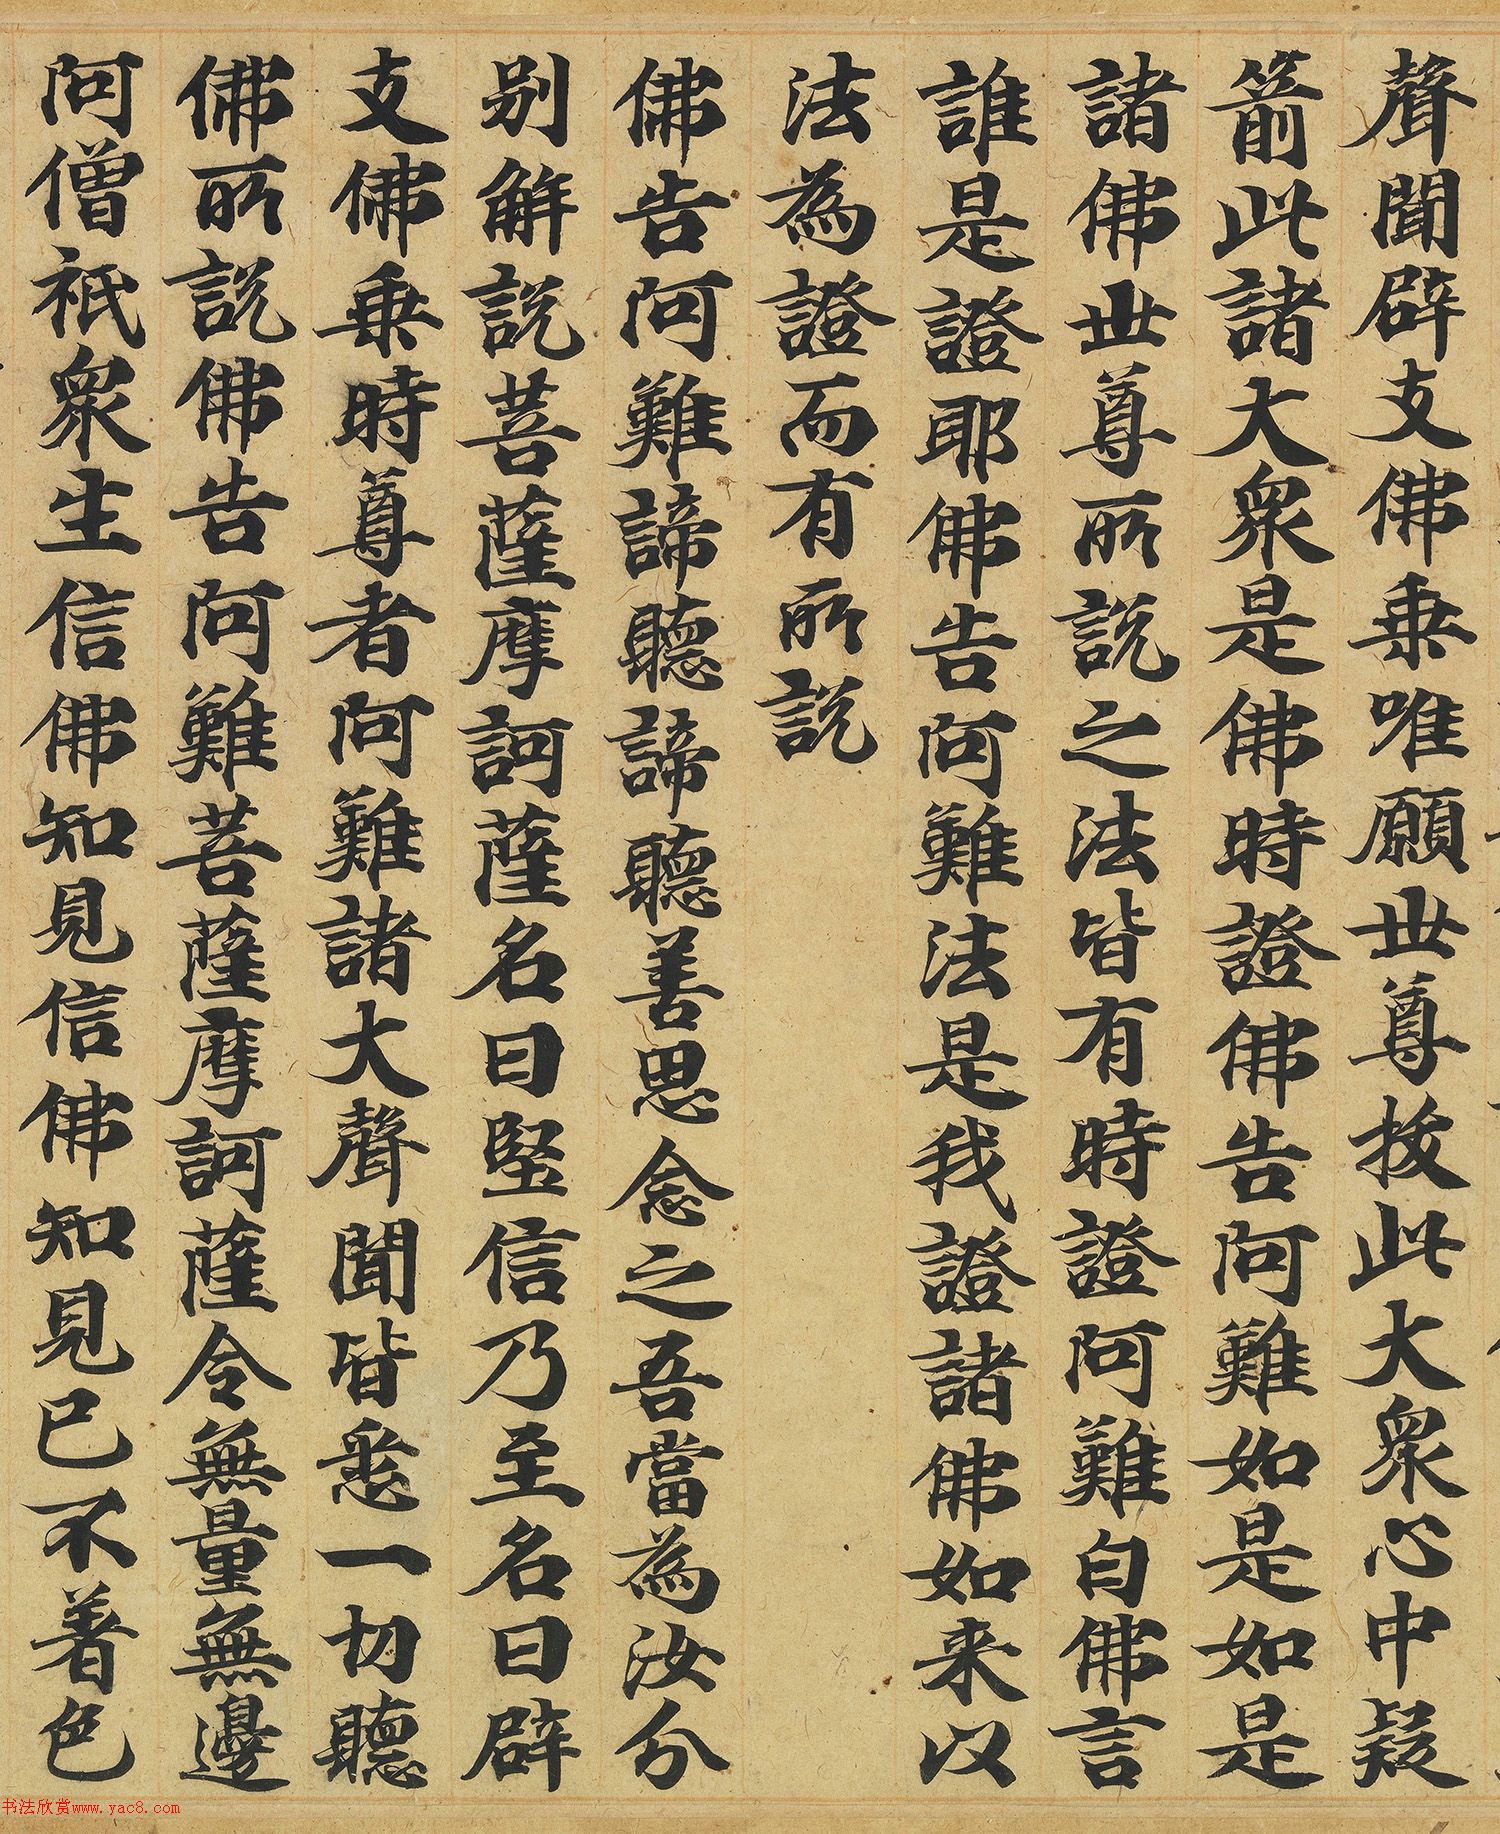 聲聞辟支佛乗唯願世尊拔此大衆心中疑
箭此諸大衆是佛時證佛告阿難如是如是
諸佛世尊所説之法皆有時證阿難白佛言
誰是證耶佛告阿難法是我證諸佛如来以
法為證而有所説
佛告阿難諦聽諦聽善思念之吾當為汝分
别解説菩薩摩訶薩名曰堅信乃至名曰辟
支佛乗時尊者阿難諸大聲聞皆悉一切聽
佛所説佛告阿難菩薩摩訶薩令無量無邊
阿僧祇衆生信佛知見信佛知見已不著色
书法欣赏www.yac8.com